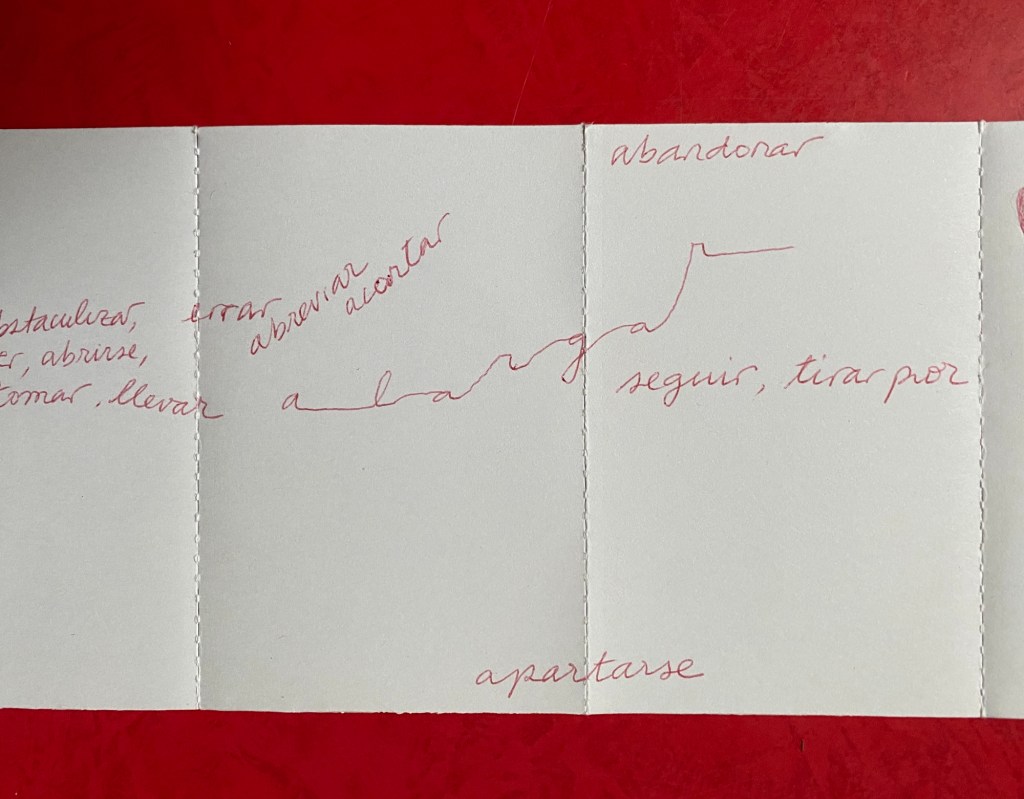 abandonar
bstaculizar, errar
er, abrirse,
tomar. llevar
abreviar
acortar
alargar
seguir, tirar por
apartarse